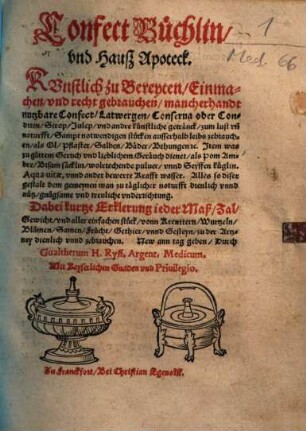 Confect Büchlin/
vnd Hausz Apoteck.
1
Med. 66
Künstlich zu Bereyten/Einma-
chen/vnd recht gebrauchen/mancherhandt
nutzbare Confect/Latwergen/Conserua oder Con-
diten/Sirop/Julep/vnd andre künstliche getränck/zum lust vñ
notturfft/Sampt notwendigen stücken ausserhalb leibs gebrauch-
en/als Öl/Pflaster/Salben/Bäder/Behungen ꝛc. Item was
zu gůtem Geruch vnd lieblichem Gerauch dienet/als Pom Am-
ber/Bisem säcklin/wolriechende puluer/vnnd Seyffen küglin.
Aqua vitæ/vnnd ander bewerte Krafft wasser. Alles so diser
gestalt dem gemeynen man zu täglicher notturfft dienlich vnnd
nütz/gnůgsame vnd trewliche vnderrichtung.
Dabei kurtze Erklerung ieder Masz/Zal/
Gewicht/vnd aller einfachen stück/vonn Kreuttern/Wurtzeln/
Blůmen/Samen/Frücht/Gethier/vnnd Gesteyn/zu der Artz-
ney dienlich vnnd gebrauchen. New ann tag geben/Durch
Gualtherum H. Ryff, Argent. Medicum.
Mit Keyserlichen Gnaden vnd Priuilegio.
Zu Franckfort/Bei Christian Egenolff.